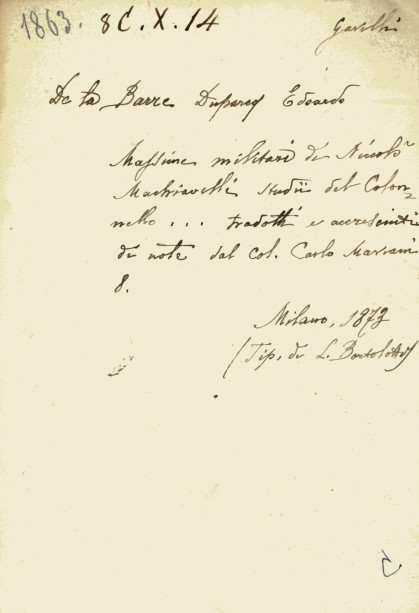 1863. 8C.X.14
De la Barre Duparcq Edoardo
Massime militari di Niccolò
Machiavelli studii del Colon-
nello ... tradotti e accresciuti
di note dal col. Carlo Mariani
8.
Milano, 1873
(Tip. di L. Bortolotti)